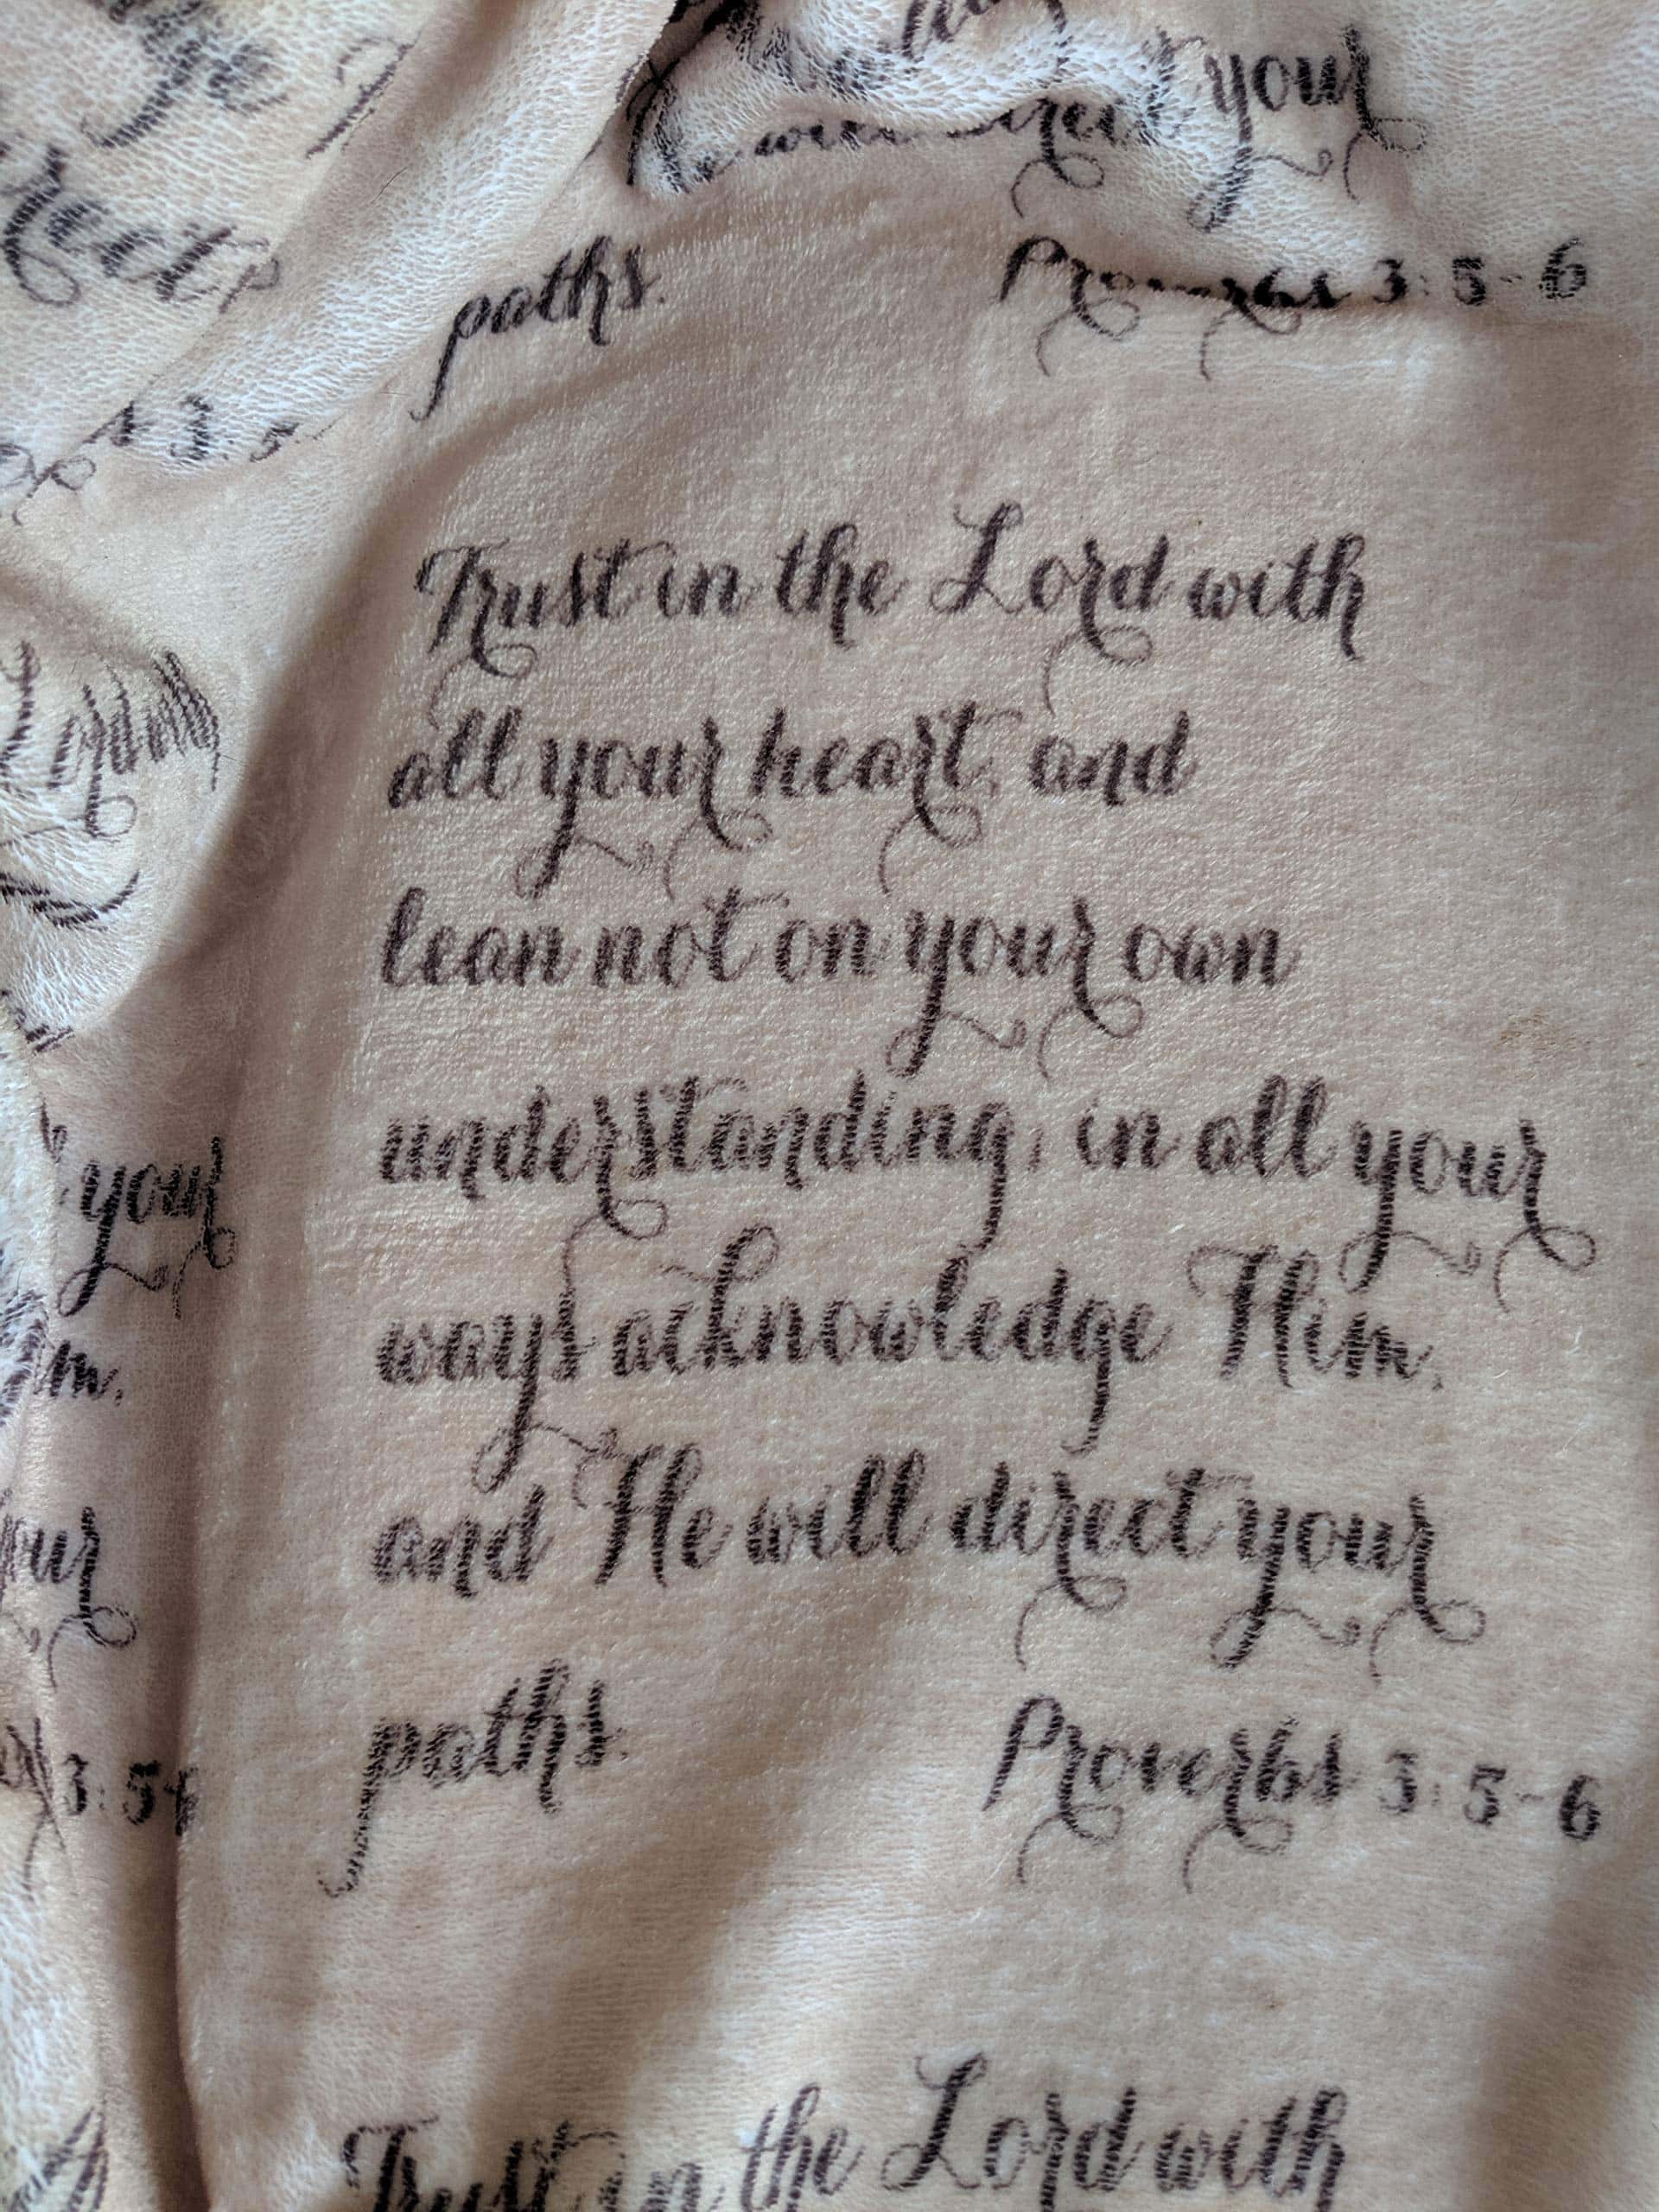 your
paths.
Proverbs 3:5-6
3:5
Trust in the Lord with
all your heart, and
lean not on your own
understanding, in all your
ways acknowledge Him,
and He will direct your
paths.
Proverbs 3:5-6
your
m,
ur
3:5-6
Trust in the Lord with